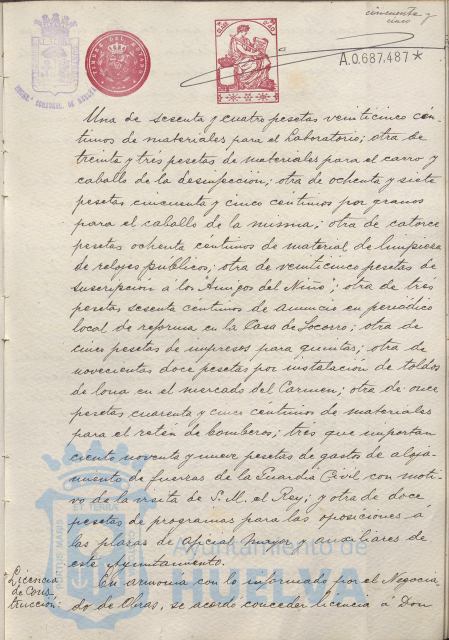 cincuenta y
cinco
TIMBRE DEL ESTADO
A.0.687.487*
Una de sesenta y cuatro pesetas veinticinco cén-
timos de materiales para el Laboratorio; otra de
treinta y tres pesetas de materiales para el carro y
caballo de la desinfección; otra de ochenta y siete
pesetas cincuenta y cinco centimos por granos
para el caballo de la misma; otra de catorce
pesetas ochenta céntimos de material de limpiesa
de relojes públicos; otra de veinticinco pesetas de
suscripcion a los Amigos del Niño; otra de tres
pesetas sesenta céntimos de anuncio en periódico
local de reforma en la Casa de Socorro; otra de
cinco pesetas de impresos para quintas; otra de
novecientas doce pesetas por instalación de toldos
de lona en el mercado del Carmen; otra de once
pesetas cuarenta y cinco céntimos de materiales
para el retén de bomberos; tres que importan
ciento noventa y nueve pesetas de gastos de aloja-
miento de fuerzas de la Guardia Civil con moti-
vo de la visita de S. M. el Rey; y otra de doce
pesetas de programas para las oposiciones á
las plazas de oficial mayor y auxiliares de
este Ayuntamiento.
Licencia
de Cons
trucción:
En armonia con lo informado por el Negocia-
do de Obras, se acordó conceder licencia á Don
Ayuntamiento de
HUELVA